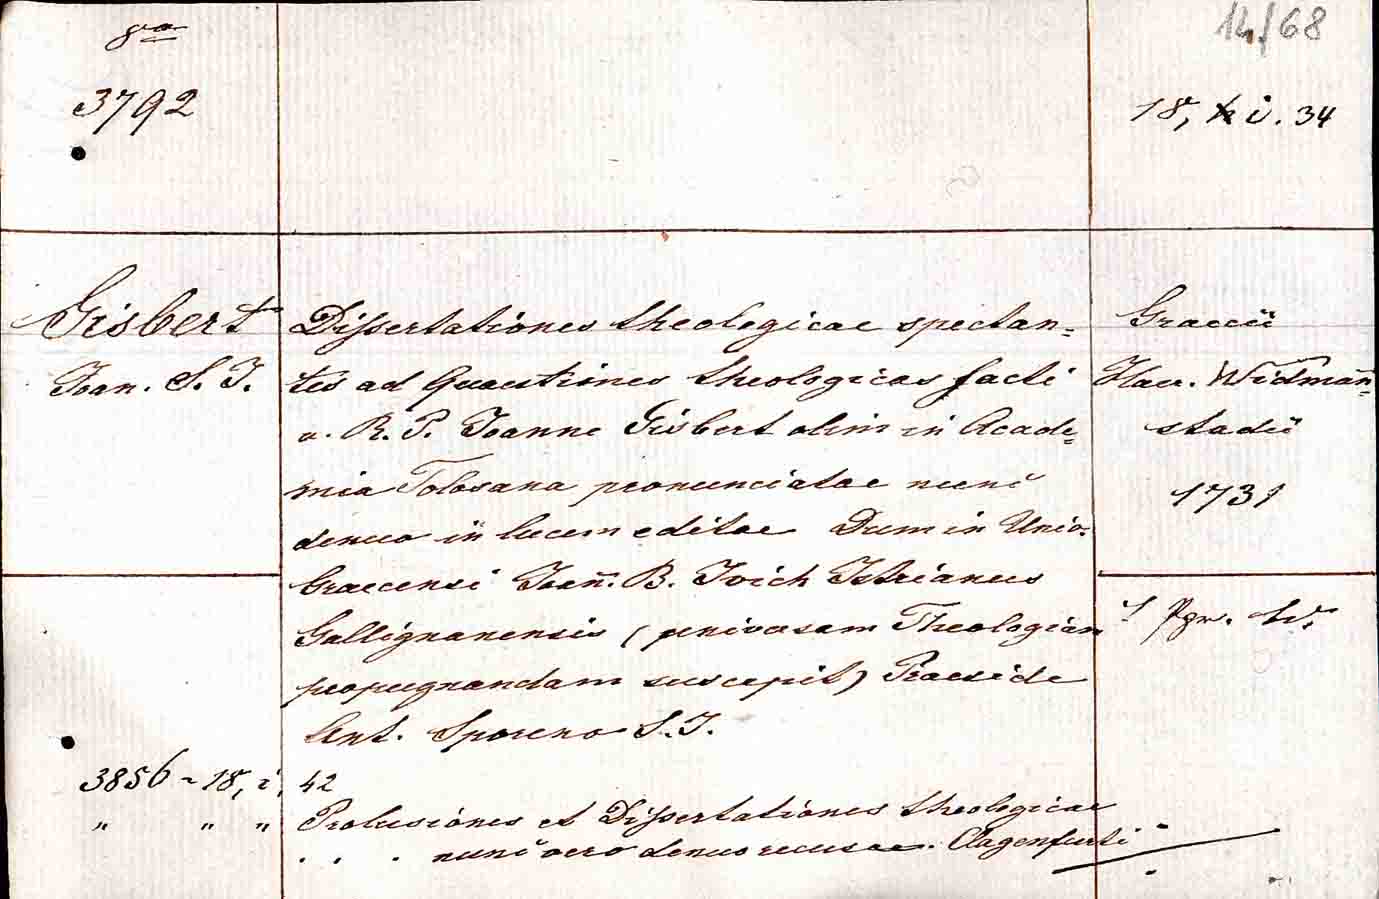 8vo
14/68
3792
18, i. 34
Gisbert
Joan. S. J.
Dissertationes theologicae spectan=
tes ad Quaestiones theologicas facti
a. R. P. Joanne Gisbert olim in Acade=
mia Tolosana pronunciatae nunc
denuo in lucem editae Dum in Univ.
Graecensi Joan̄. B. Ivich Istrianus
Gallignanensis (universam Theologiam
propugnandam suscepit) Praeside
Ant. Sporeno S. J.
Graecii
Haer. Widman=
stadii
1731
1 Pgm.
3856 - 18, i, 42
" " " Prolusiones et Dissertationes theologicae
. . . nunc vero denuo recusae. Clagenfurti